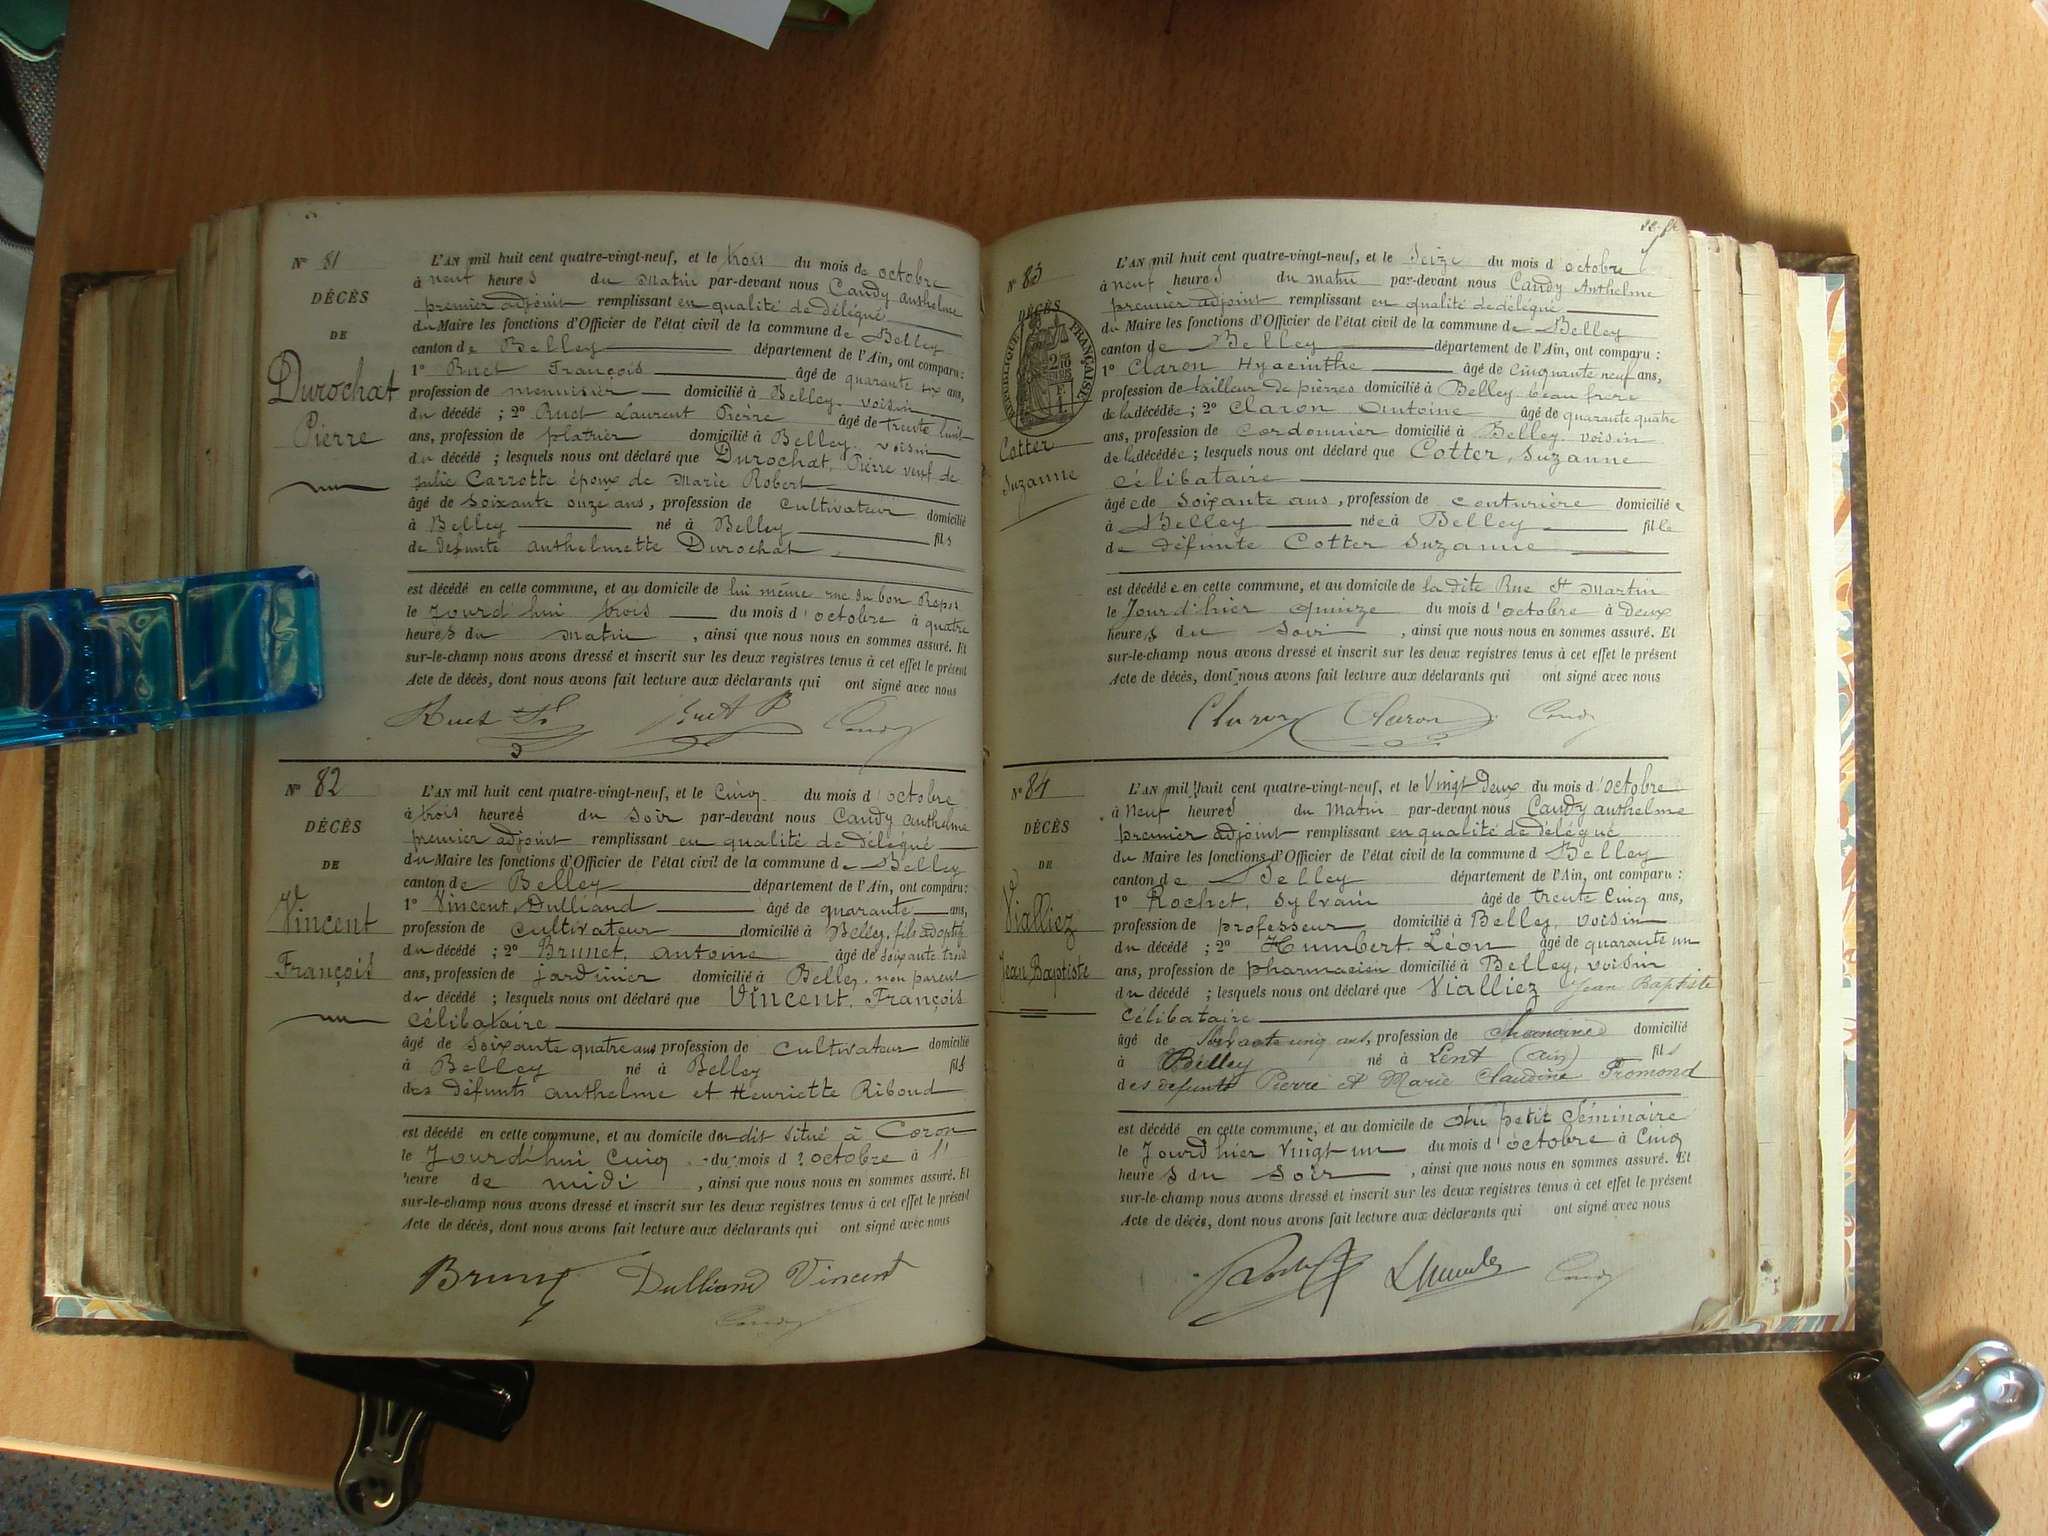 N° 81
DÉCÈS
DE
Durochat
Pierre
L'AN mil huit cent quatre-vingt-neuf, et le trois du mois de octobre
à neuf heures du matin par-devant nous Candy anthelme
premier adjoint remplissant en qualité de délégué
du Maire les fonctions d'Officier de l'état civil de la commune de Belley
canton de Belley département de l'Ain, ont comparu :
1° Ruet François âgé de quarante six ans,
profession de menuisier domicilié à Belley voisin
du décédé ; 2° Ruet Laurent Pierre âgé de trente huit
ans, profession de platrier domicilié à Belley voisin
du décédé ; lesquels nous ont déclaré que Durochat, Pierre veuf de
Julie Carrotte époux de Marie Robert
âgé de soixante onze ans, profession de cultivateur domicilié
à Belley né à Belley fils
de défunte anthelmette Durochat
est décédé en cette commune, et au domicile de lui même rue du bon Repos
le Jourd'hui trois du mois d'octobre à quatre
heures du matin , ainsi que nous nous en sommes assuré. Et
sur-le-champ nous avons dressé et inscrit sur les deux registres tenus à cet effet le présent
Acte de décès, dont nous avons fait lecture aux déclarants qui ont signé avec nous
Ruet Candy
N° 82
DÉCÈS
DE
Vincent
François
L'AN mil huit cent quatre-vingt-neuf, et le cinq du mois d'octobre
à trois heures du soir par-devant nous Candy anthelme
premier adjoint remplissant en qualité de délégué
du Maire les fonctions d'Officier de l'état civil de la commune de Belley
canton de Belley département de l'Ain, ont comparu :
1° Vincent, Dulliand âgé de quarante ans,
profession de cultivateur domicilié à Belley, fils adoptif
du décédé ; 2° Brunet, antoine âgé de soixante trois
ans, profession de jardinier domicilié à Belley, non parent
du décédé ; lesquels nous ont déclaré que Vincent, François
célibataire
âgé de soixante quatre ans profession de cultivateur domicilié
à Belley né à Belley fils
des défunts anthelme et Henriette Riboud
est décédé en cette commune, et au domicile du dit situé à Coron
le Jourd'hui cinq du mois d'octobre à l'
heure de midi , ainsi que nous nous en sommes assuré. Et
sur-le-champ nous avons dressé et inscrit sur les deux registres tenus à cet effet le présent
Acte de décès, dont nous avons fait lecture aux déclarants qui ont signé avec nous
Brunet Dulliand Vincent
Candy
N° 83
DÉCÈS
RÉPUBLIQUE FRANÇAISE
Cotter
Suzanne
L'AN mil huit cent quatre-vingt-neuf, et le Seize du mois d'octobre
à neuf heures du matin par-devant nous Candy Anthelme
premier adjoint remplissant en qualité de délégué
du Maire les fonctions d'Officier de l'état civil de la commune de Belley
canton de Belley département de l'Ain, ont comparu :
1° Claron Hyacinthe âgé de cinquante neuf ans,
profession de tailleur de pierres domicilié à Belley beau frère
de la décédée ; 2° Claron Antoine âgé de quarante quatre
ans, profession de cordonnier domicilié à Belley voisin
de la décédée ; lesquels nous ont déclaré que Cotter, Suzanne
célibataire
âgée de soixante ans, profession de couturière domiciliée
à Belley née à Belley fille
de défunte Cotter Suzanne
est décédée en cette commune, et au domicile de la dite Rue St Martin
le Jourd'hier quinze du mois d'octobre à Deux
heures du soir , ainsi que nous nous en sommes assuré. Et
sur-le-champ nous avons dressé et inscrit sur les deux registres tenus à cet effet le présent
Acte de décès, dont nous avons fait lecture aux déclarants qui ont signé avec nous
Claron Claron Candy
N° 84
DÉCÈS
DE
Vialliez
Jean Baptiste
L'AN mil huit cent quatre-vingt-neuf, et le Vingt Deux du mois d'octobre
à Neuf heures du Matin par-devant nous Candy anthelme
premier adjoint remplissant en qualité de délégué
du Maire les fonctions d'Officier de l'état civil de la commune d Belley
canton de Belley département de l'Ain, ont comparu :
1° Rochet, Sylvain âgé de trente cinq ans,
profession de professeur domicilié à Belley, voisin
du décédé ; 2° Humbert Léon âgé de quarante un
ans, profession de pharmacien domicilié à Belley, voisin
du décédé ; lesquels nous ont déclaré que Vialliez Jean Baptiste
Célibataire
âgé de ans, profession de chanoine domicilié
à Belley né à Lent (Ain) fils
des défunts Pierre et Marie Claudine Fromond
est décédé en cette commune, et au domicile de du petit Séminaire
le Jourd'hier vingt un du mois d'octobre à cinq
heures du soir , ainsi que nous nous en sommes assuré. Et
sur-le-champ nous avons dressé et inscrit sur les deux registres tenus à cet effet le présent
Acte de décès, dont nous avons fait lecture aux déclarants qui ont signé avec nous
Candy